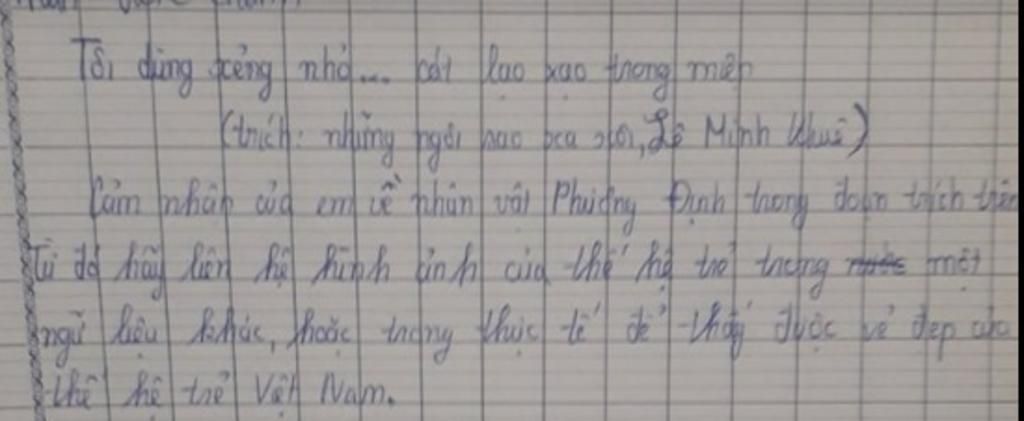 Tôi dùng xẻng nhỏ... cát lạo xạo trong miệng
(trích: những ngôi sao xa xôi, Lê Minh Khuê)
Cảm nhận của em về nhân vật Phương Định trong đoạn trích trên
Từ đó hãy liên hệ hình ảnh của thế hệ trẻ trong một
ngữ liệu khác, hoặc trong thực tế để thấy được vẻ đẹp của
thế hệ trẻ Việt Nam.